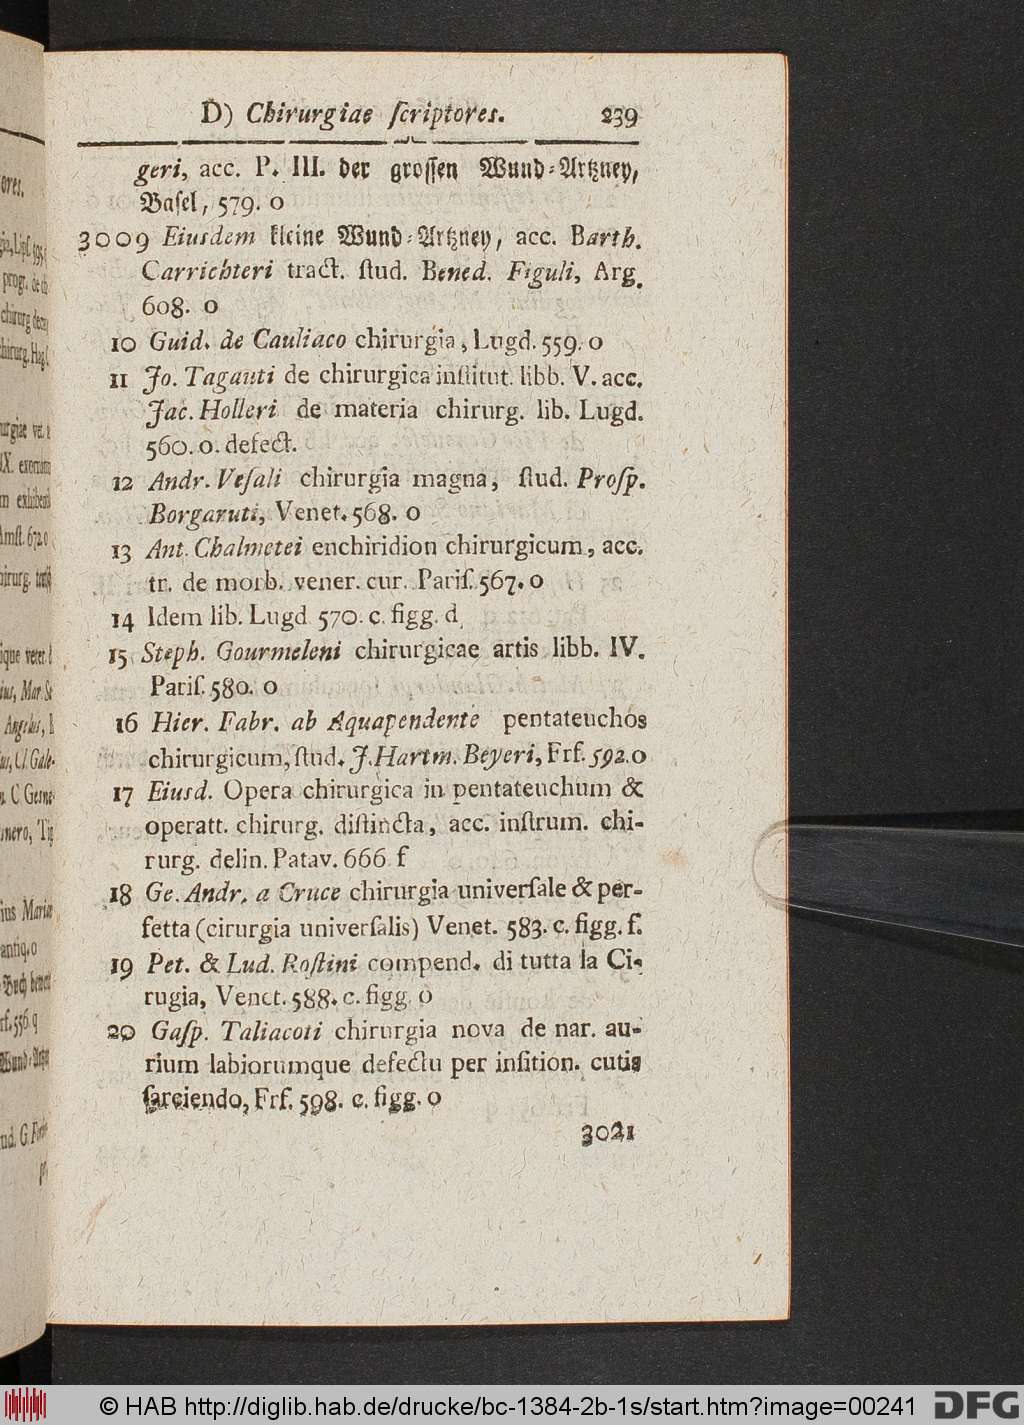 D) Chirurgiae ſcriptores. 239
geri, acc. P. III. der groſſen Wund-Artzney,
Baſel, 579. o
3009 Eiusdem kleine Wund-Artzney, acc. Barth.
Carrichteri tract. ſtud. Bened. Figuli, Arg.
608. o
10 Guid. de Cauliaco chirurgia, Lugd. 559. o
11 Jo. Tagauti de chirurgica inſtitut. libb. V. acc.
Jac. Holleri de materia chirurg. lib. Lugd.
560. o. defect.
12 Andr. Veſali chirurgia magna, ſtud. Proſp.
Borgaruti, Venet. 568. o
13 Ant. Chalmetei enchiridion chirurgicum, acc.
tr. de morb. vener. cur. Pariſ. 567. o
14 Idem lib. Lugd 570. c. figg. d
15 Steph. Gourmeleni chirurgicae artis libb. IV.
Pariſ. 580. o
16 Hier. Fabr. ab Aquapendente pentateuchos
chirurgicum, ſtud. J. Hartm. Beyeri, Frf. 592. o
17 Eiusd. Opera chirurgica in pentateuchum &
operatt. chirurg. diſtincta, acc. inſtrum. chi-
rurg. delin. Patav. 666. f
18 Ge. Andr. a Cruce chirurgia univerſale & per-
fetta (cirurgia univerſalis) Venet. 583. c. figg. f.
19 Pet. & Lud. Roſtini compend. di tutta la Ci-
rugia, Venet. 588. c. figg. o
20 Gaſp. Taliacoti chirurgia nova de nar. au-
rium labiorumque defectu per inſition. cutis
ſarciendo, Frf. 598. c. figg. o
3021
© HAB http://diglib.hab.de/drucke/bc-1384-2b-1s/start.htm?image=00241
DFG